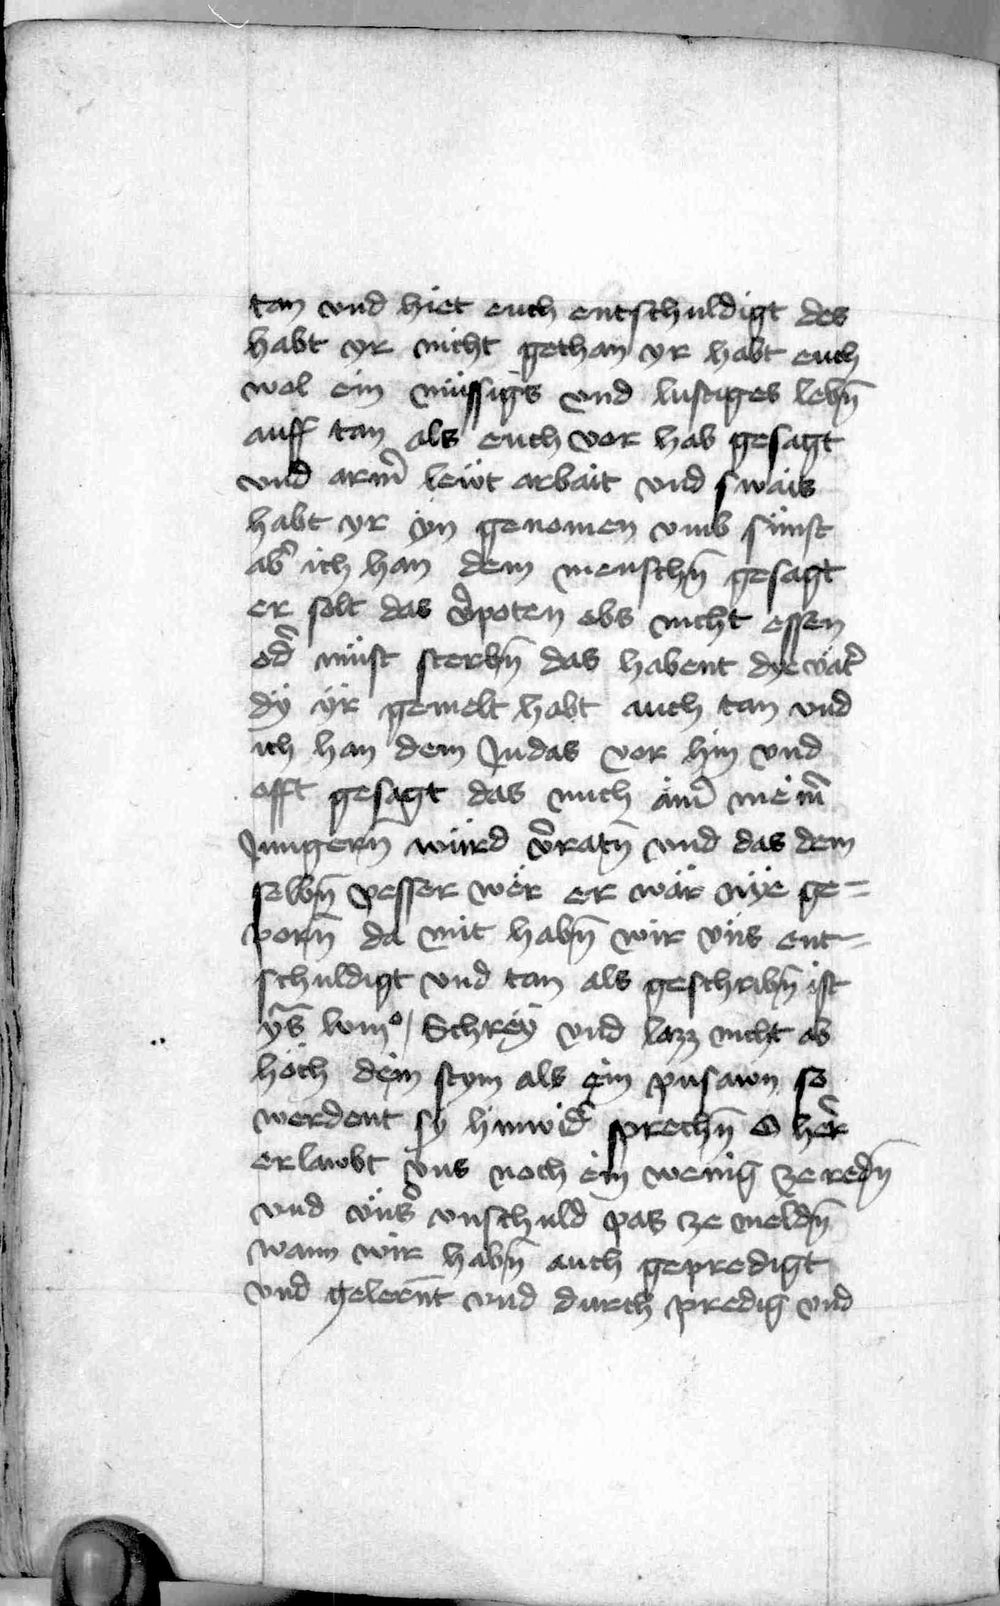 tan vnd hiet euch entschuldigt des
habt yr nicht gethan yr habt euch
wol ein müssigs vnd lustiges lebn̄
auff tan als euch vor hab gesagt
vnd arm̄ lewt arbait vnd swais
habt yr yn genomen vmb sünst
ab̄ ich han dem menschn̄ gesagt
er solt das v̄poten obs nicht essen
od̄ müst sterbn̄ das habent dye vät̄
dÿ ÿr gemelt habt auch tan vnd
ich han dem Judas vor hin vnd
offt gesagt das mich äin̄ mein̄
Jungern̄ würd v̄ratn̄ vnd das dem
selbn̄ pesser wer er wär nÿe ge=
porn̄ da mit habn̄ wir vns ent=
schuldigt vnd tan als geschribn̄ ist
ys̄ lviii° / Schreÿ vnd lazz nicht ab
höch dein stym als ein pusawn so
werdent sÿ hinwid̄ sprechn̄ O her̄
erlawbt vns noch ein wenig ze redn̄
vnd vns̄ vnschuld pas ze meldn̄
wann wir habn̄ auch gepredigt
vnd gelern̄t vnd durch predig vnd